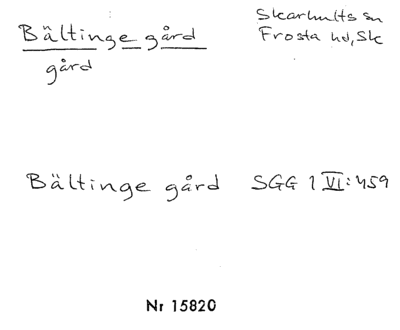 Bältinge gård
gård
Skarhults sn
Frosta hd, Sk
Bältinge gård SGG 1 VI: 459
Nr 15820